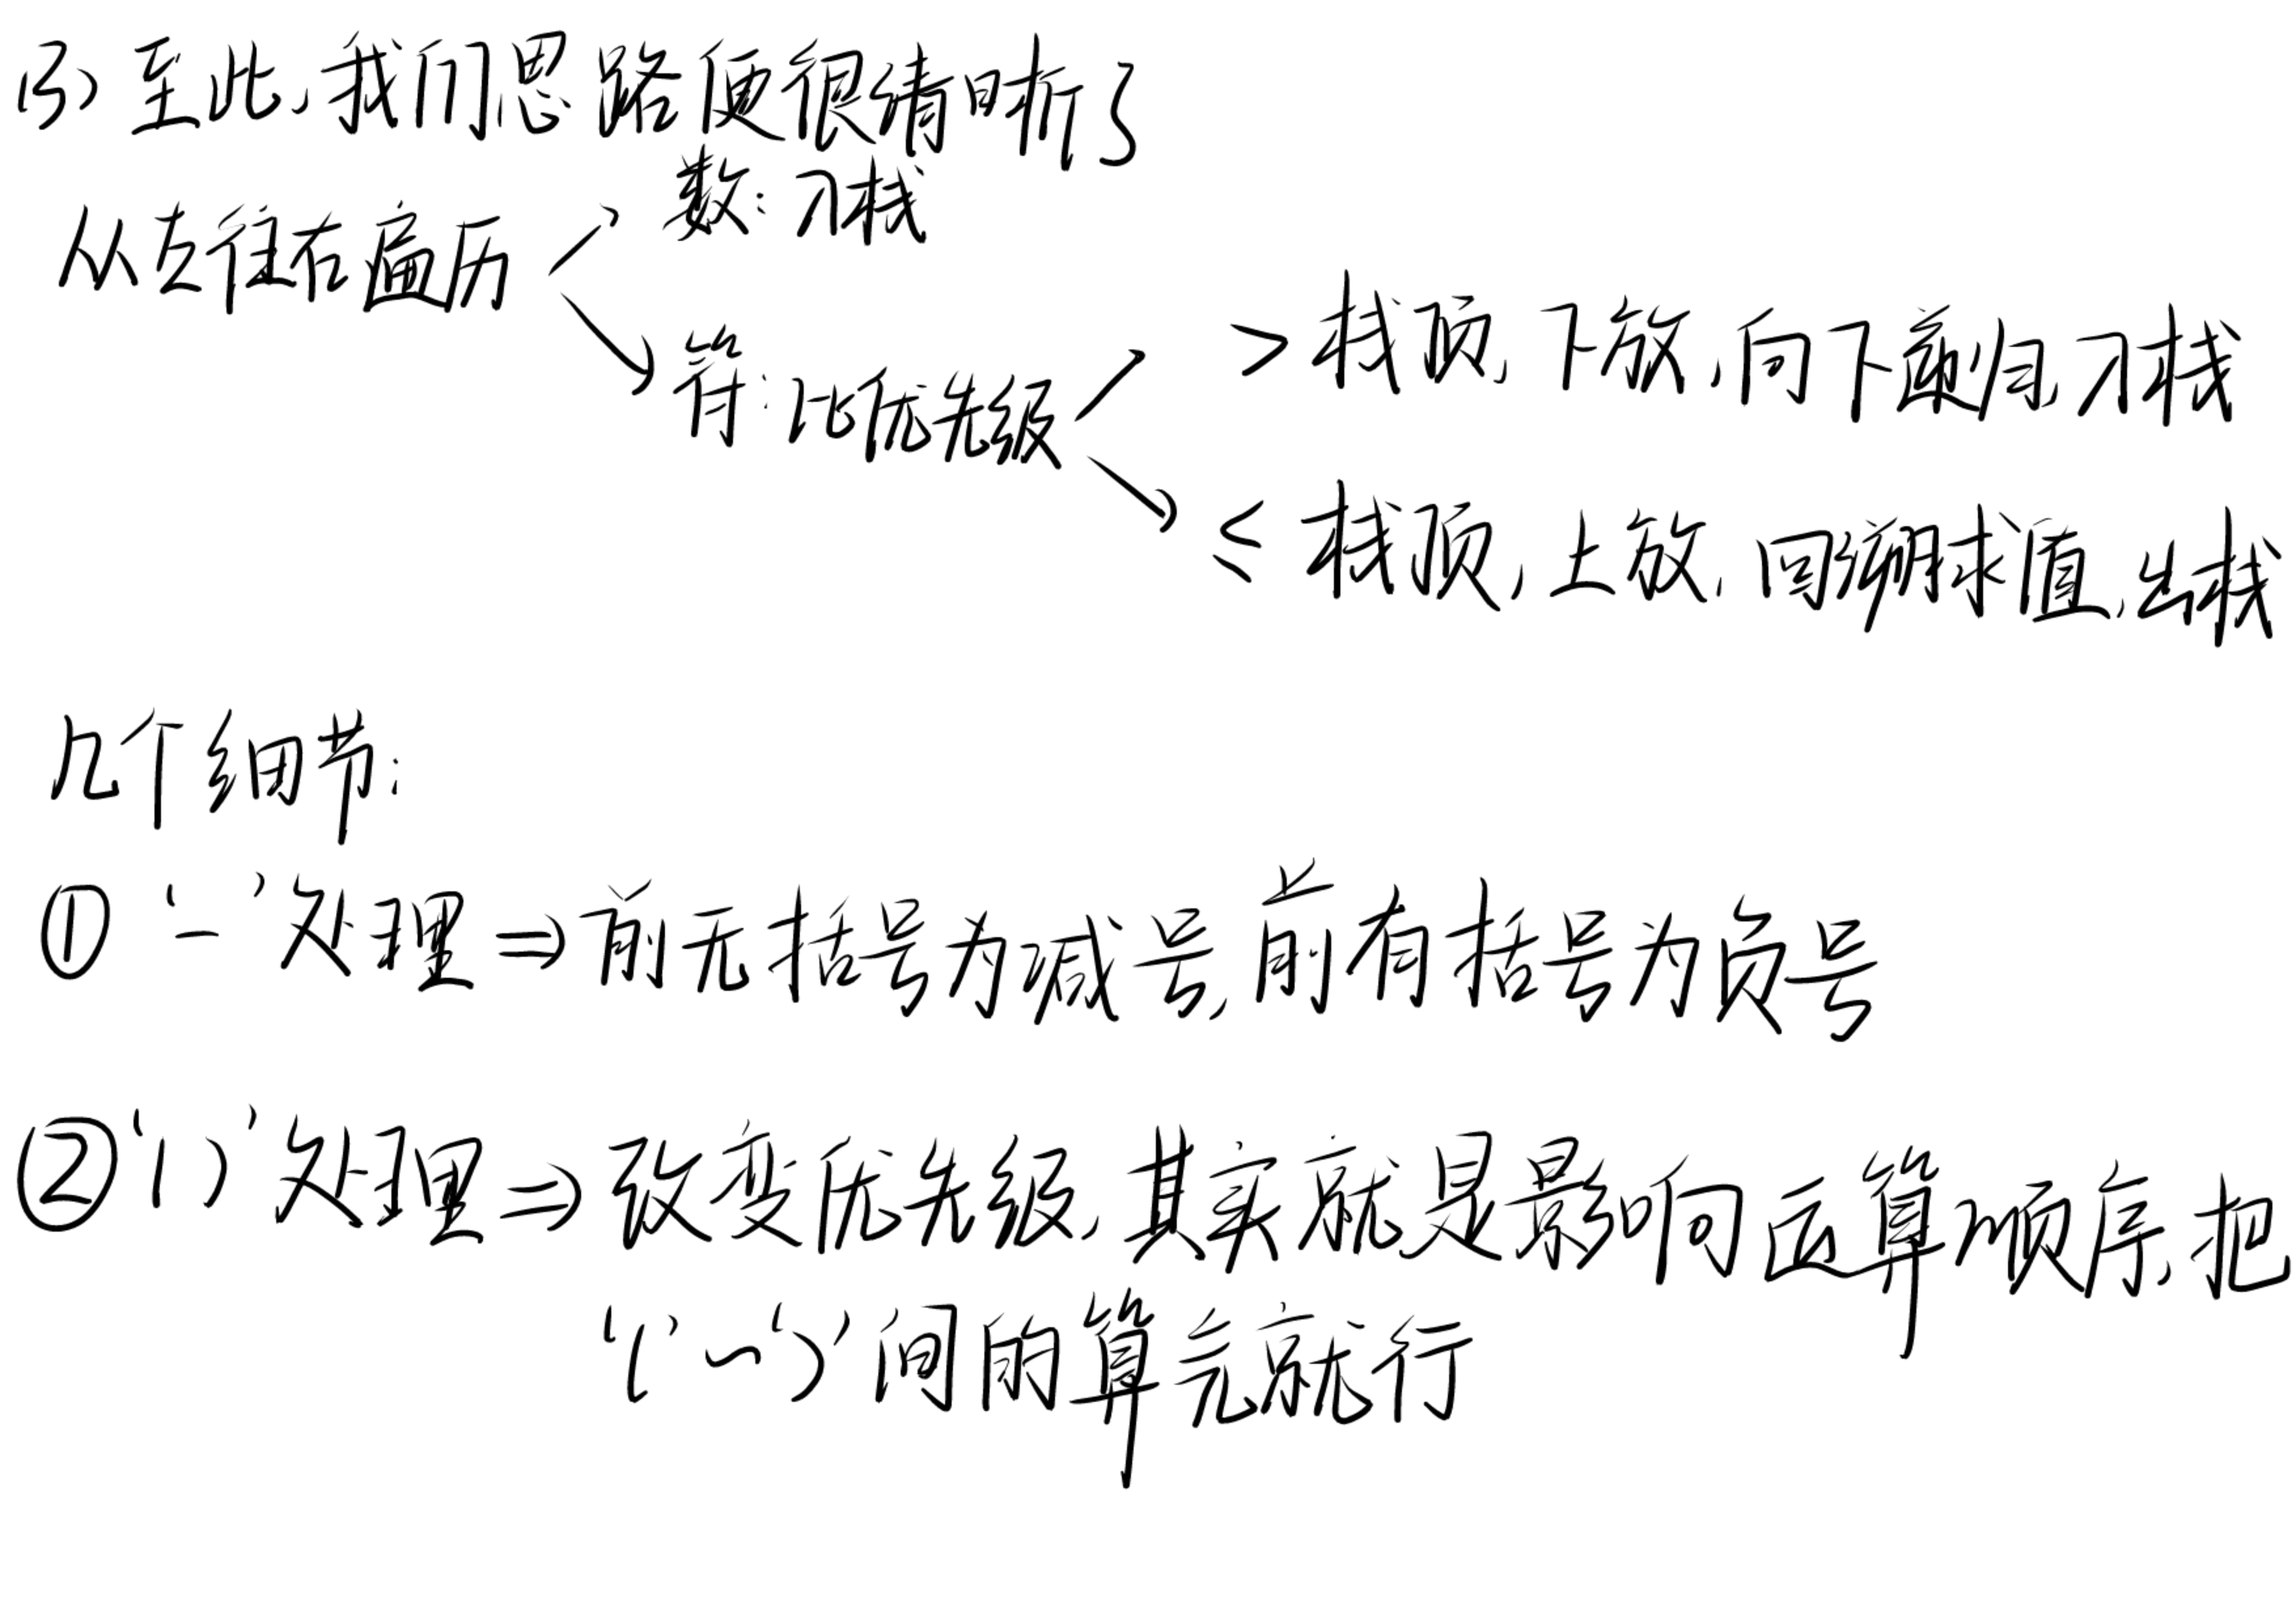 (3) 至此,我们思路便很清晰了
数:入栈
从左往右遍历
>栈顶,下放,向下递归,入栈
符:比优先级
≤栈顶,上放,回溯求值,出栈
几个细节:
① '-'处理⇒前无括号为减号,前有括号为负号
②'()'处理⇒改变优先级,其实就是影响运算顺序,把
'('~')'间的算完就行